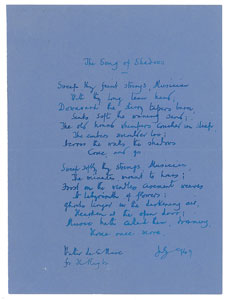 The Song of Shadows
Sweep thy faint strings, Musician
With thy long lean hand;
Downward the starry tapers burn
Sinks soft the waning sand;
The old hound whimpers couched in sleep
The embers smoulder low;
Across the walls the shadows
Come, and go.
Sweep softly thy strings, Musician
The minutes mount to hours;
Frost on the windless casement weaves
A labyrinth of flowers;
Ghosts linger in the darkening air,
Hearken at the open door;
Music hath called them, dreaming,
Home once more.
Walter de la Mare
for